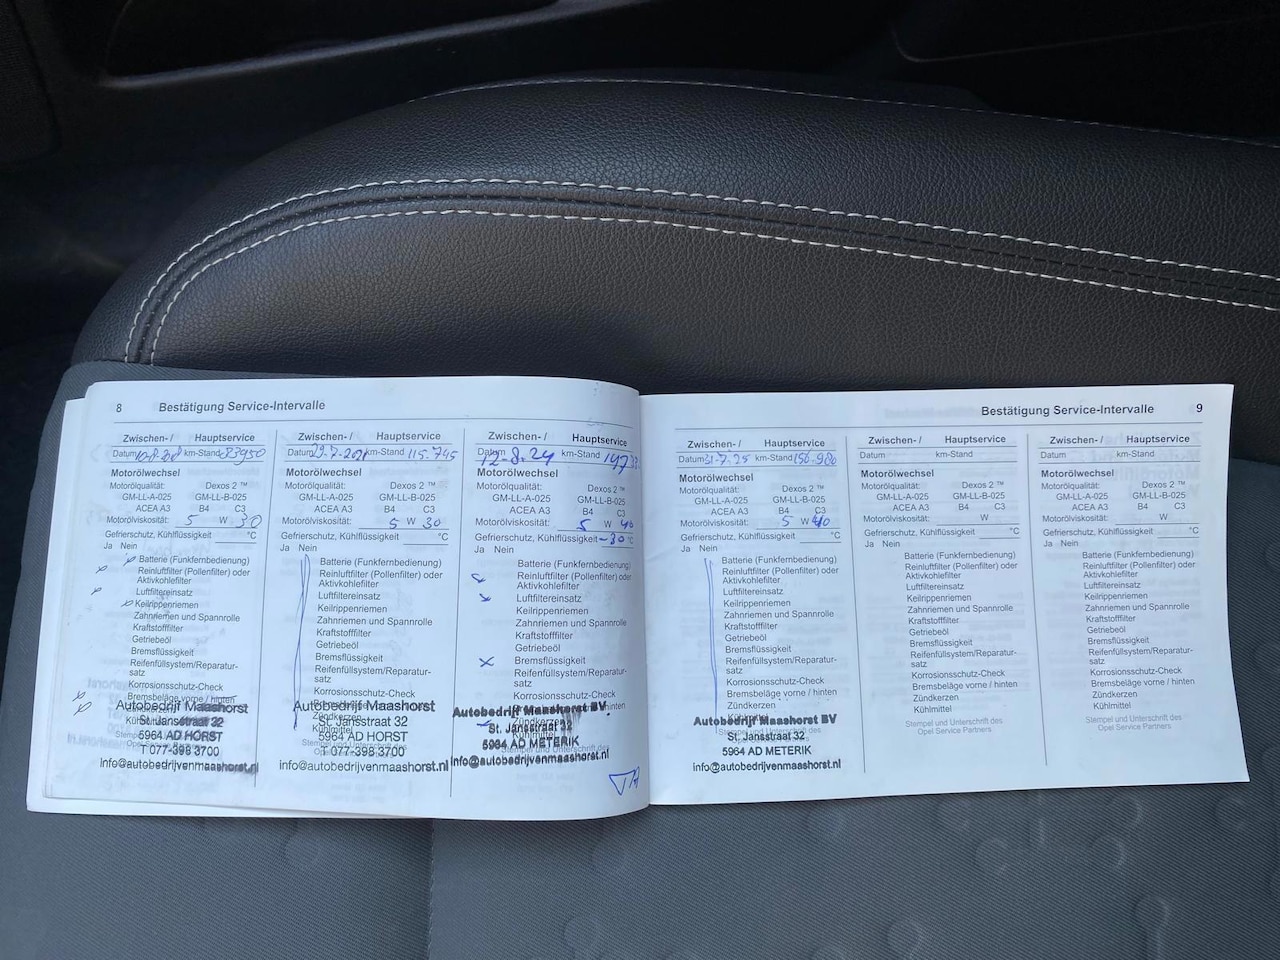 8 Bestätigung Service-Intervalle
Zwischen- / Hauptservice
Datum km-Stand 83950
Motorölwechsel
Motorölqualität: Dexos 2 ™
GM-LL-A-025 GM-LL-B-025
ACEA A3 B4 C3
Motorölviskosität: 5 W 30
Gefrierschutz, Kühlflüssigkeit °C
Ja Nein
Batterie (Funkfernbedienung)
Reinluftfilter (Pollenfilter) oder
Aktivkohlefilter
Luftfiltereinsatz
Keilrippenriemen
Zahnriemen und Spannrolle
Kraftstofffilter
Getriebeöl
Bremsflüssigkeit
Reifenfüllsystem/Reparatur-
satz
Korrosionsschutz-Check
Bremsbeläge vorne / hinten
Autobedrijf Maashorst
St. Jansstraat 32
5964 AD HORST
T 077-398 3700
info@autobedrijvenmaashorst.nl
Zwischen- / Hauptservice
Datum km-Stand 115.745
Motorölwechsel
Motorölqualität: Dexos 2 ™
GM-LL-A-025 GM-LL-B-025
ACEA A3 B4 C3
Motorölviskosität: 5 W 30
Gefrierschutz, Kühlflüssigkeit °C
Ja Nein
Batterie (Funkfernbedienung)
Reinluftfilter (Pollenfilter) oder
Aktivkohlefilter
Luftfiltereinsatz
Keilrippenriemen
Zahnriemen und Spannrolle
Kraftstofffilter
Getriebeöl
Bremsflüssigkeit
Reifenfüllsystem/Reparatur-
satz
Korrosionsschutz-Check
Autobedrijf Maashorst
St. Jansstraat 32
5964 AD HORST
T 077-398 3700
info@autobedrijvenmaashorst.nl
Zwischen- / Hauptservice
Datum 12-8.24 km-Stand
Motorölwechsel
Motorölqualität: Dexos 2 ™
GM-LL-A-025 GM-LL-B-025
ACEA A3 B4 C3
Motorölviskosität: 5 W 40
Gefrierschutz, Kühlflüssigkeit -30 °C
Ja Nein
Batterie (Funkfernbedienung)
Reinluftfilter (Pollenfilter) oder
Aktivkohlefilter
Luftfiltereinsatz
Keilrippenriemen
Zahnriemen und Spannrolle
Kraftstofffilter
Getriebeöl
Bremsflüssigkeit
Reifenfüllsystem/Reparatur-
satz
Korrosionsschutz-Check
Autobedrijf Maashorst BV
Zündkerzen
St. Jansstraat 32
5964 AD METERIK
info@autobedrijvenmaashorst.nl
Bestätigung Service-Intervalle 9
Zwischen- / Hauptservice
Datum 31-7.25 km-Stand 156.980
Motorölwechsel
Motorölqualität: Dexos 2 ™
GM-LL-A-025 GM-LL-B-025
ACEA A3 B4 C3
Motorölviskosität: 5 W 40
Gefrierschutz, Kühlflüssigkeit °C
Ja Nein
Batterie (Funkfernbedienung)
Reinluftfilter (Pollenfilter) oder
Aktivkohlefilter
Luftfiltereinsatz
Keilrippenriemen
Zahnriemen und Spannrolle
Kraftstofffilter
Getriebeöl
Bremsflüssigkeit
Reifenfüllsystem/Reparatur-
satz
Korrosionsschutz-Check
Bremsbeläge vorne / hinten
Zündkerzen
Kühlmittel
Autobedrijf Maashorst BV
St. Jansstraat 32
5964 AD METERIK
info@autobedrijvenmaashorst.nl
Zwischen- / Hauptservice
Datum km-Stand
Motorölwechsel
Motorölqualität: Dexos 2 ™
GM-LL-A-025 GM-LL-B-025
ACEA A3 B4 C3
Motorölviskosität: W
Gefrierschutz, Kühlflüssigkeit °C
Ja Nein
Batterie (Funkfernbedienung)
Reinluftfilter (Pollenfilter) oder
Aktivkohlefilter
Luftfiltereinsatz
Keilrippenriemen
Zahnriemen und Spannrolle
Kraftstofffilter
Getriebeöl
Bremsflüssigkeit
Reifenfüllsystem/Reparatur-
satz
Korrosionsschutz-Check
Bremsbeläge vorne / hinten
Zündkerzen
Kühlmittel
Stempel und Unterschrift des
Opel Service Partners
Zwischen- / Hauptservice
Datum km-Stand
Motorölwechsel
Motorölqualität: Dexos 2 ™
GM-LL-A-025 GM-LL-B-025
ACEA A3 B4 C3
Motorölviskosität: W
Gefrierschutz, Kühlflüssigkeit °C
Ja Nein
Batterie (Funkfernbedienung)
Reinluftfilter (Pollenfilter) oder
Aktivkohlefilter
Luftfiltereinsatz
Keilrippenriemen
Zahnriemen und Spannrolle
Kraftstofffilter
Getriebeöl
Bremsflüssigkeit
Reifenfüllsystem/Reparatur-
satz
Korrosionsschutz-Check
Bremsbeläge vorne / hinten
Zündkerzen
Kühlmittel
Stempel und Unterschrift des
Opel Service Partners